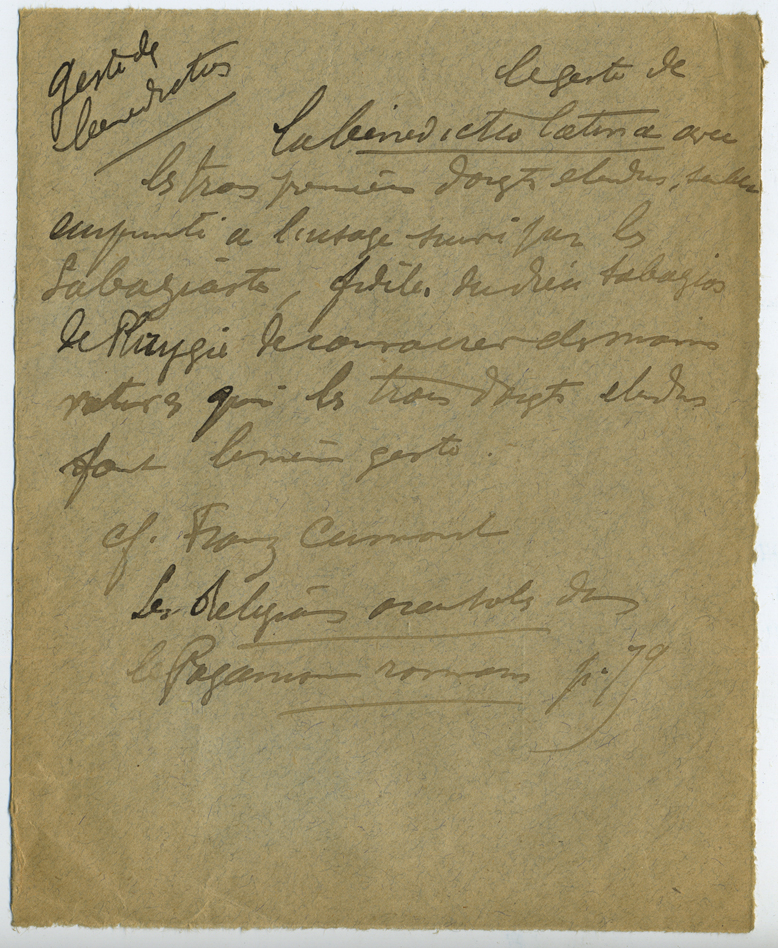 geste de
benedictus
le geste de
la benedictio latina avec
les trois premiers doigts etendus, semble
emprunté a l'usage suivi par les
Sabaziastes, fidèles du dieu Sabazios
de Phrygie de consacrer des mains
votives qui les trois doigts etendus
font le même geste.
cf. Franz Cumont
Les Religions orientales dans
le Paganisme romain p. 79